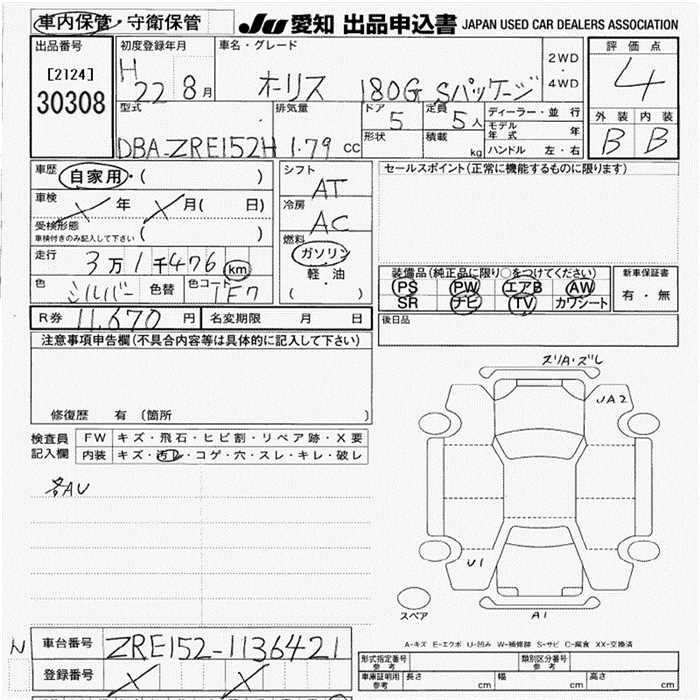 車内保管・守衛保管
JU 愛知 出品申込書 JAPAN USED CAR DEALERS ASSOCIATION
出品番号
[2124]
30308
初度登録年月
H 22 8月
車名・グレード
オーリス 180G Sパッケージ
2WD
・
4WD
評価点
4
外装 内装
B B
型式
DBA-ZRE152H
排気量
1.79 cc
ドア
5
定員
5人
形状
積載
kg
ディーラー・並行
モデル年式 年
ハンドル 左・右
車歴
自家用・( )
車検
X年 X月( 日)
受検形態
車検付きのみ記入して下さい ( )
走行
3万1千476 km
色
シルバー
色替
色コード
1F7
シフト
AT
冷房
AC
燃料
ガソリン
・
軽・油
( )
セールスポイント(正常に機能するものに限ります)
装備品(純正品に限り○をつけてください)
PS PW エアB AW
SR ナビ TV カワシート
新車保証書
有・無
R券 11,670 円
名変期限 月 日
後日品
注意事項申告欄(不具合内容等は具体的に記入して下さい)
修復歴 有 (箇所 )
検査員
記入欄
FW キズ・飛石・ヒビ割・リペア跡・X要
内装 キズ・汚レ・コゲ・穴・スレ・キレ・破レ
各AU
ズリA・ズレ
UA2
U1
A1
スペア
A-キズ E-エクボ U-凹み W-補修跡 S-サビ C-腐食 XX-交換済
N
車台番号 ZRE152-1136421
登録番号 X X
形式指定番号
参考
類別区分番号
参考
車庫証明用
参考
長さ cm 幅 cm 高さ cm